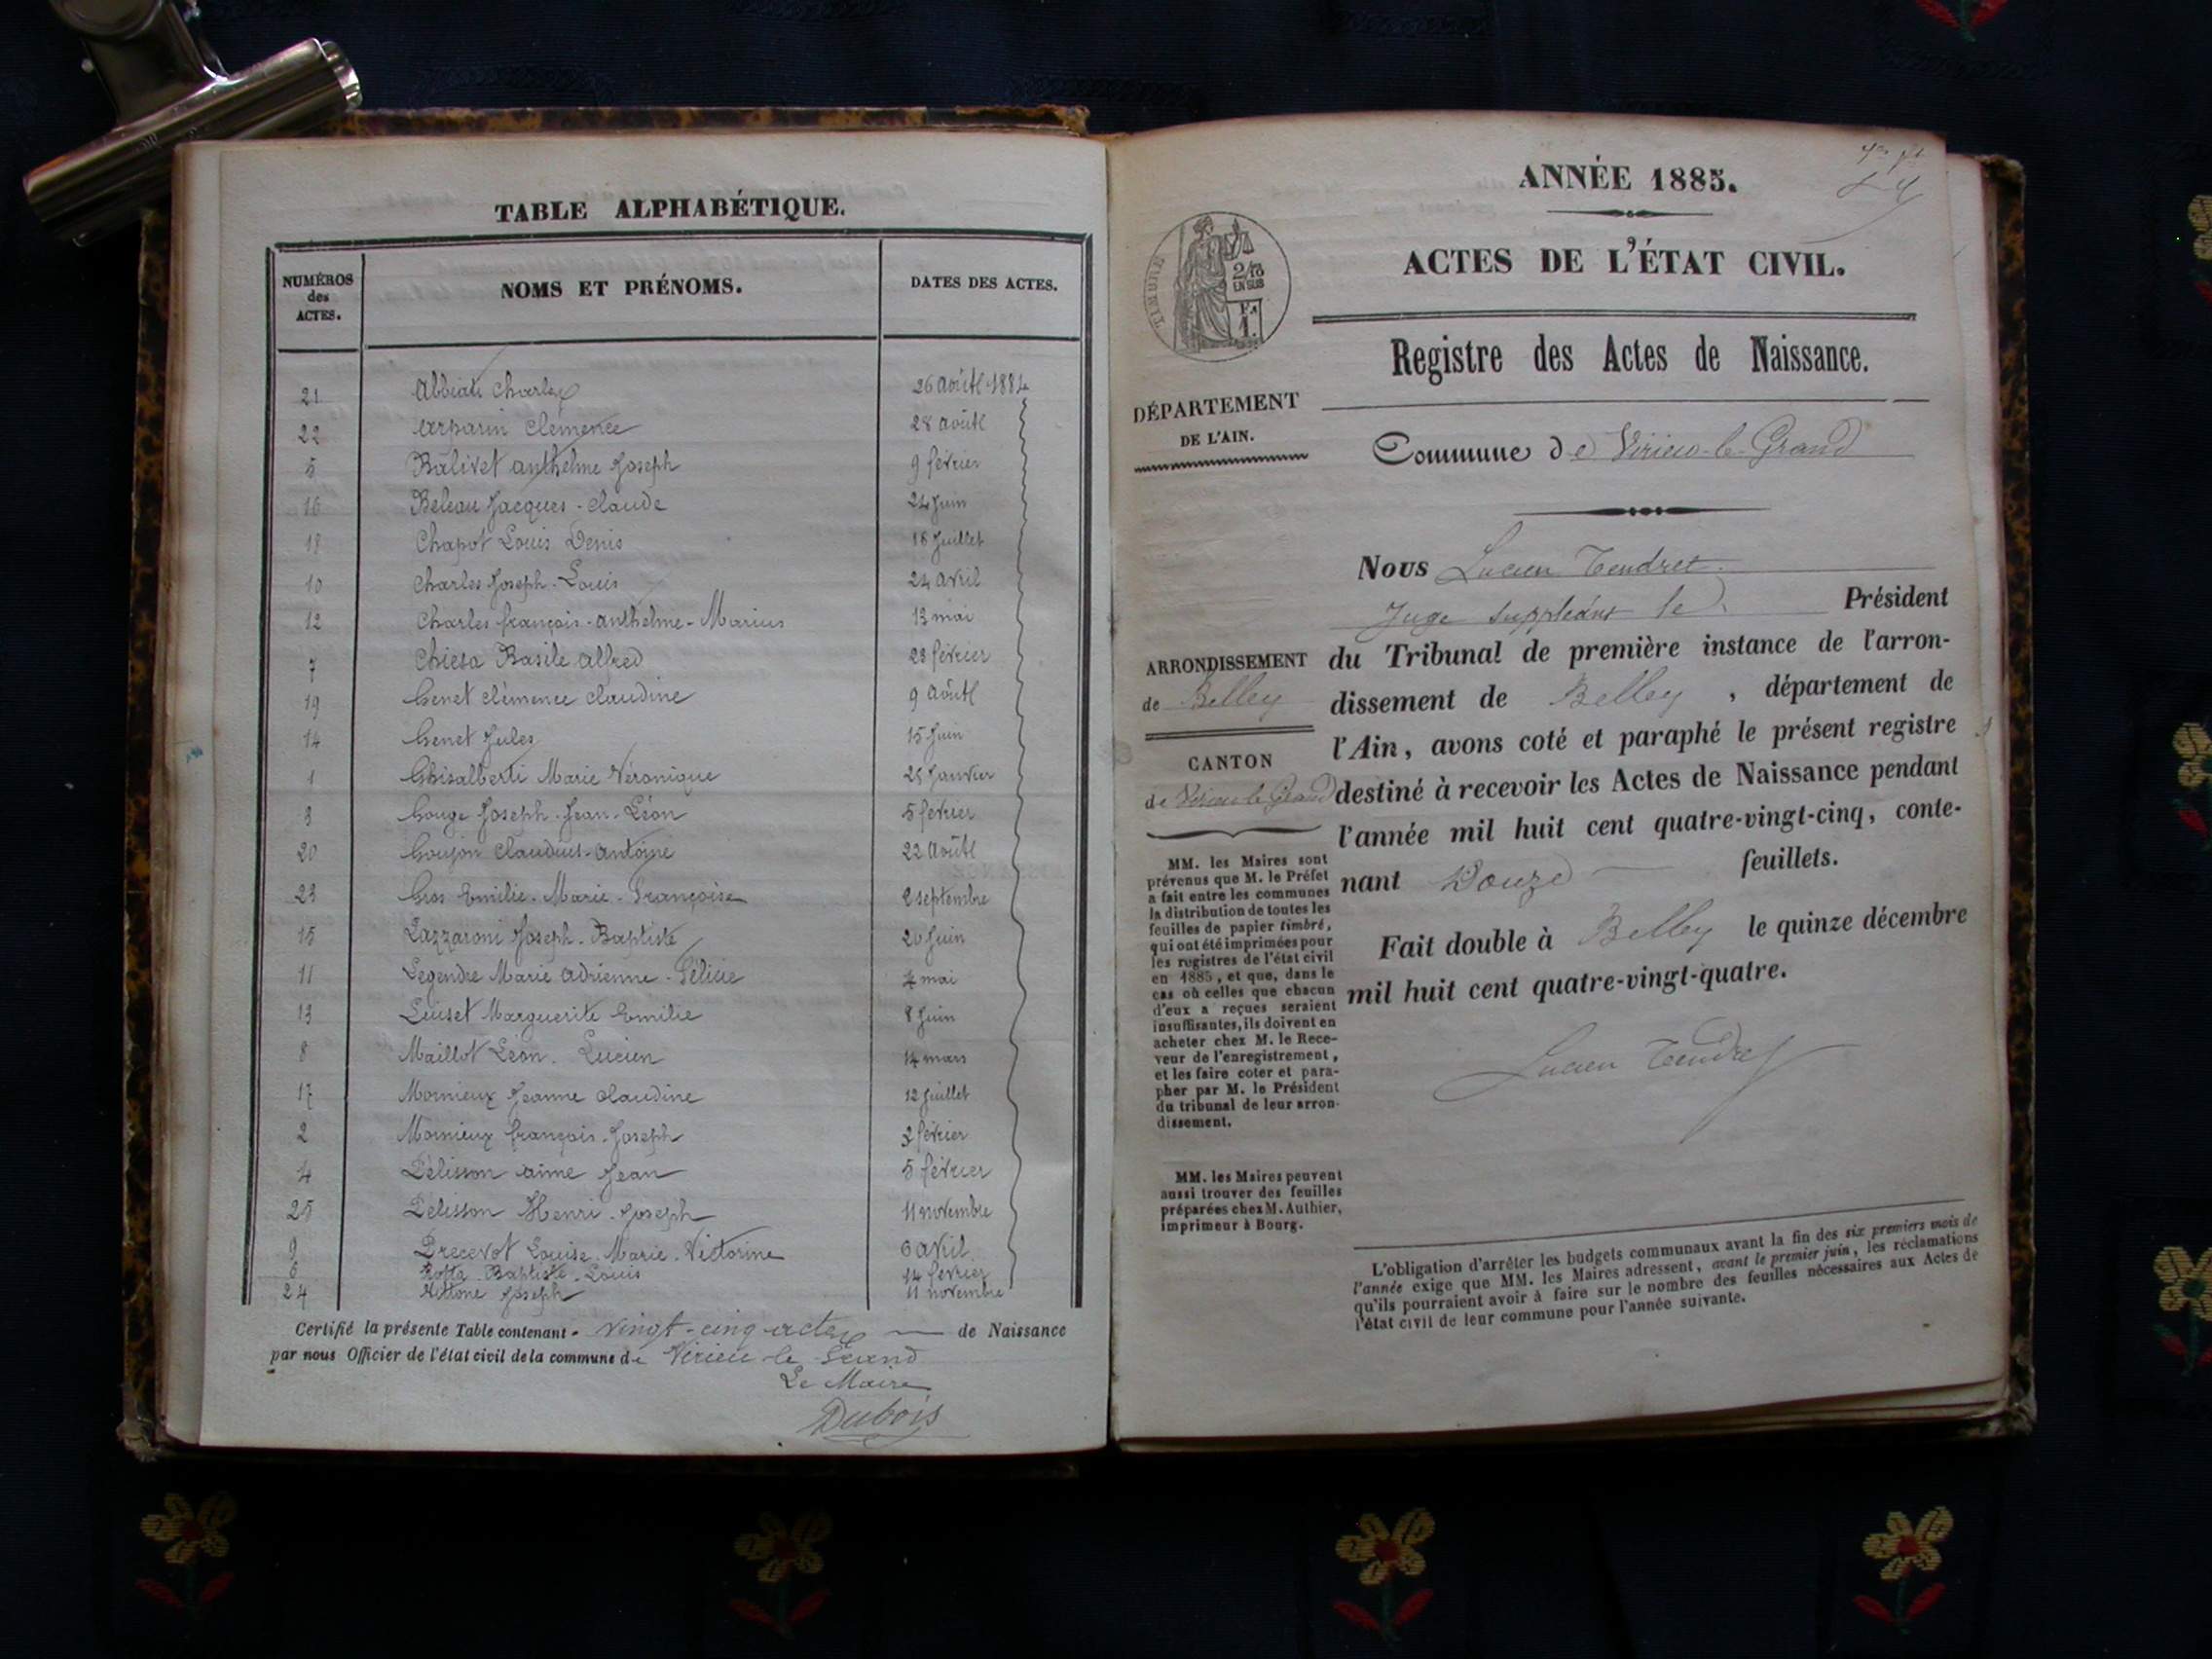 TABLE ALPHABÉTIQUE.
NUMÉROS
des
ACTES.
NOMS ET PRÉNOMS.
DATES DES ACTES.
21 Abbiati Charles 26 août 1884
22 Arparin Clémence 28 août
5 Balivet Anthelme Joseph 9 février
16 Beleau Jacques-Claude 24 Juin
18 Chapot Louis Denis 18 Juillet
10 Charles Joseph-Louis 24 avril
12 Charles françois-anthelme-Marius 13 mai
7 Chiesa Basile Alfred 23 février
19 Genet Clémence Claudine 9 août
14 Genet Jules 15 Juin
1 Ghisalberti Marie Véronique 25 Janvier
3 Gouge Joseph-Jean-Léon 5 février
20 Goujon Claudius-Antoine 22 août
23 Gros Emilie-Marie-Françoise 2 septembre
15 Lazzaroni Joseph-Baptiste 20 Juin
11 Legendre Marie Adrienne-Félicie 4 mai
13 Luiset Marguerite Emilie 8 Juin
8 Maillot Léon-Lucien 14 mars
17 Mornieux Jeanne Claudine 12 Juillet
2 Mornieux françois-Joseph 3 février
4 Pélisson Aimé Jean 5 février
25 Pélisson Henri-Joseph 11 novembre
9 Precevot Louise-Marie-Victorine 6 avril
6 Baptiste-Louis 14 février
24 Joseph 11 novembre
Certifié la présente Table contenant vingt-cinq actes de Naissance
par nous Officier de l'état civil de la commune de Virieu-le-Grand
Le Maire
Dubois
ANNÉE 1885.
ACTES DE L'ÉTAT CIVIL.
TIMBRE
2/10
EN SUS
1.
Registre des Actes de Naissance.
DÉPARTEMENT
DE L'AIN.
Commune de Virieu-le-Grand
Nous Lucien Tendret
Juge suppléant le Président
du Tribunal de première instance de l'arron-
dissement de Belley, département de
l'Ain, avons coté et paraphé le présent registre
destiné à recevoir les Actes de Naissance pendant
l'année mil huit cent quatre-vingt-cinq, conte-
nant Douze feuillets.
Fait double à Belley le quinze décembre
mil huit cent quatre-vingt-quatre.
Lucien Tendret
ARRONDISSEMENT
de Belley
CANTON
de Virieu le Grand
MM. les Maires sont
prévenus que M. le Préfet
a fait entre les communes
la distribution de toutes les
feuilles de papier timbré,
qui ont été imprimées pour
les registres de l'état civil
en 1885, et que, dans le
cas où celles que chacun
d'eux a reçues seraient
insuffisantes, ils doivent en
acheter chez M. le Rece-
veur de l'enregistrement,
et les faire coter et para-
pher par M. le Président
du tribunal de leur arron-
dissement.
MM. les Maires peuvent
aussi trouver des feuilles
préparées chez M. Authier,
imprimeur à Bourg.
L'obligation d'arrêter les budgets communaux avant la fin des six premiers mois de
l'année exige que MM. les Maires adressent, avant le premier juin, les réclamations
qu'ils pourraient avoir à faire sur le nombre des feuilles nécessaires aux Actes de
l'état civil de leur commune pour l'année suivante.